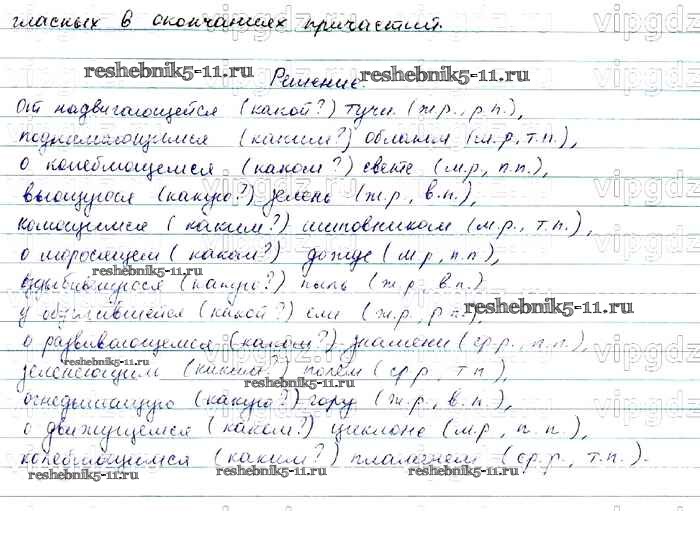 гласных в окончаниях причастий.
reshebnik5-11.ru reshebnik5-11.ru
Решение.
От надвигающейся (какой?) тучи (ж.р., р.п.),
поднимающимся (каким?) облаком (с.р., т.п.),
о колеблющемся (каком?) свете (м.р., п.п.),
вьющуюся (какую?) зелень (ж.р., в.п.),
колющимся (каким?) шиповником (м.р., т.п.),
о моросящем (каком?) дожде (м.р., п.п.),
reshebnik5-11.ru
(какую?) пыль (ж.р., в.п.)
reshebnik5-11.ru
у (какой?) ели (ж.р., р.п.),
о развивающемся (каком?) знамени (ср.р., п.п.),
reshebnik5-11.ru
зеленеющим (каким?) полем (ср.р., т.п.),
reshebnik5-11.ru
огнедышащую (какую?) гору (ж.р., в.п.),
о движущемся (каком?) циклоне (м.р., п.п.),
колеблющимся (каким?) пламенем (ср.р., т.п.).
reshebnik5-11.ru reshebnik5-11.ru reshebnik5-11.ru